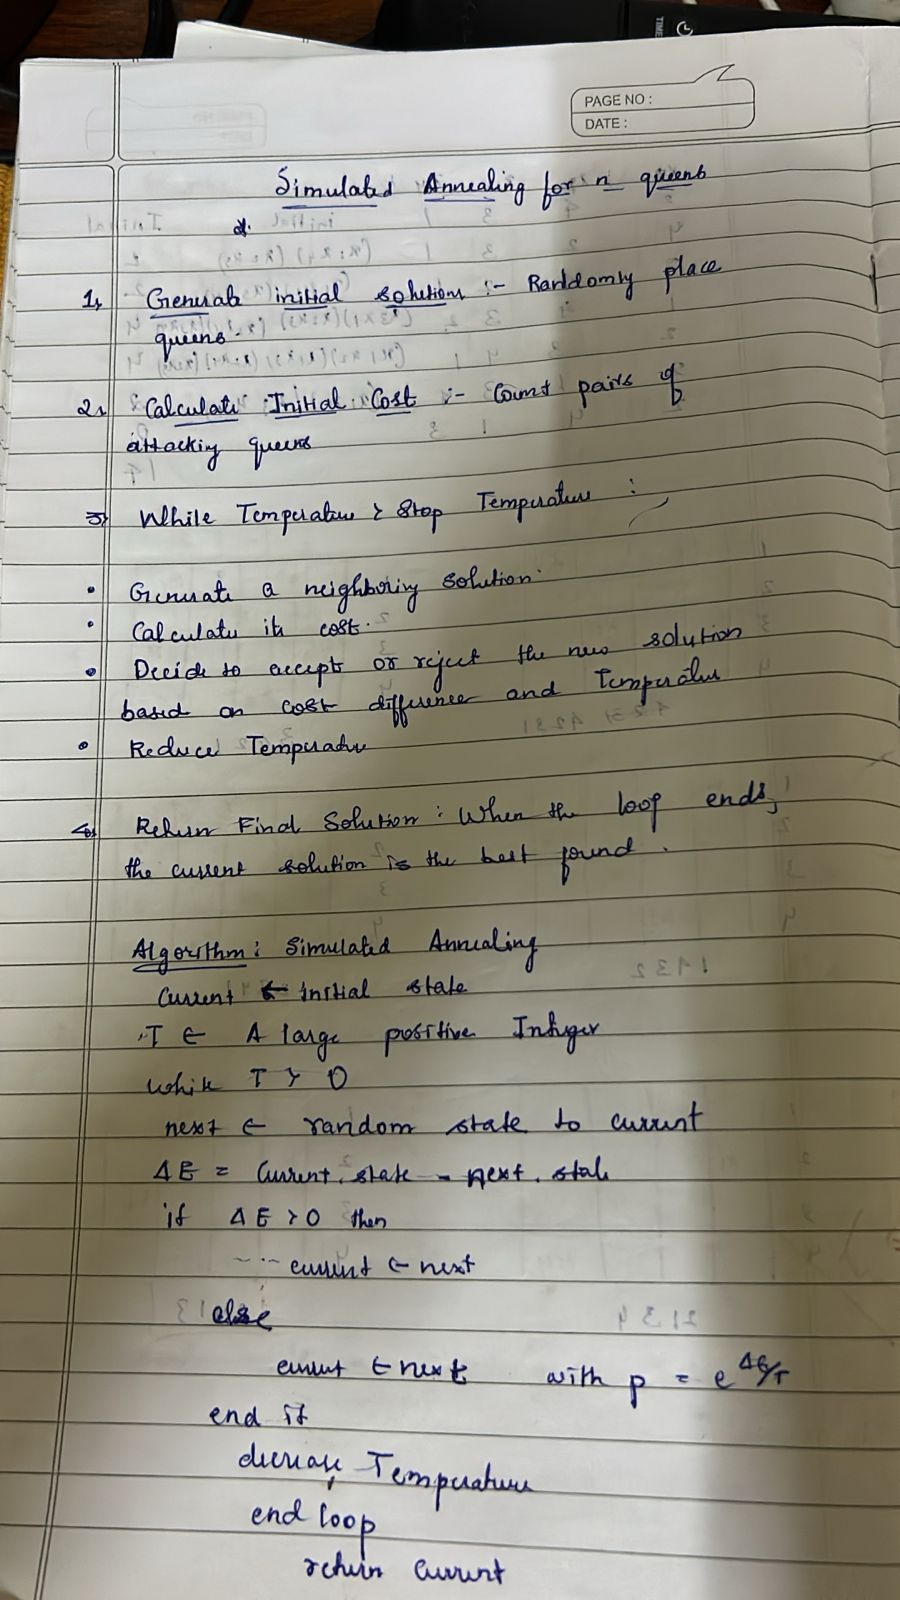 TIME
PAGE NO :
DATE :
Simulated Annealing for n queens
1, Generate initial solutions :- Randomly place
queens.
2, Calculate Initial Cost :- Count pairs of
attacking queens
3, While Temperature > Stop Temperature :
• Generate a neighboring solution.
• Calculate its cost.
• Decide to accept or reject the new solution
based on cost difference and Temperature
• Reduce Temperature
4, Return Final Solution : When the loop ends,
the current solution is the best found.
Algorithm : Simulated Annealing
Current ← initial state
T ← A large positive Integer
while T > 0
next ← random state to current
ΔE = Current. state - next. state
if ΔE > 0 then
current ← next
else
current ← next with p = e^ΔE/T
end if
decrease Temperature
end loop
return current